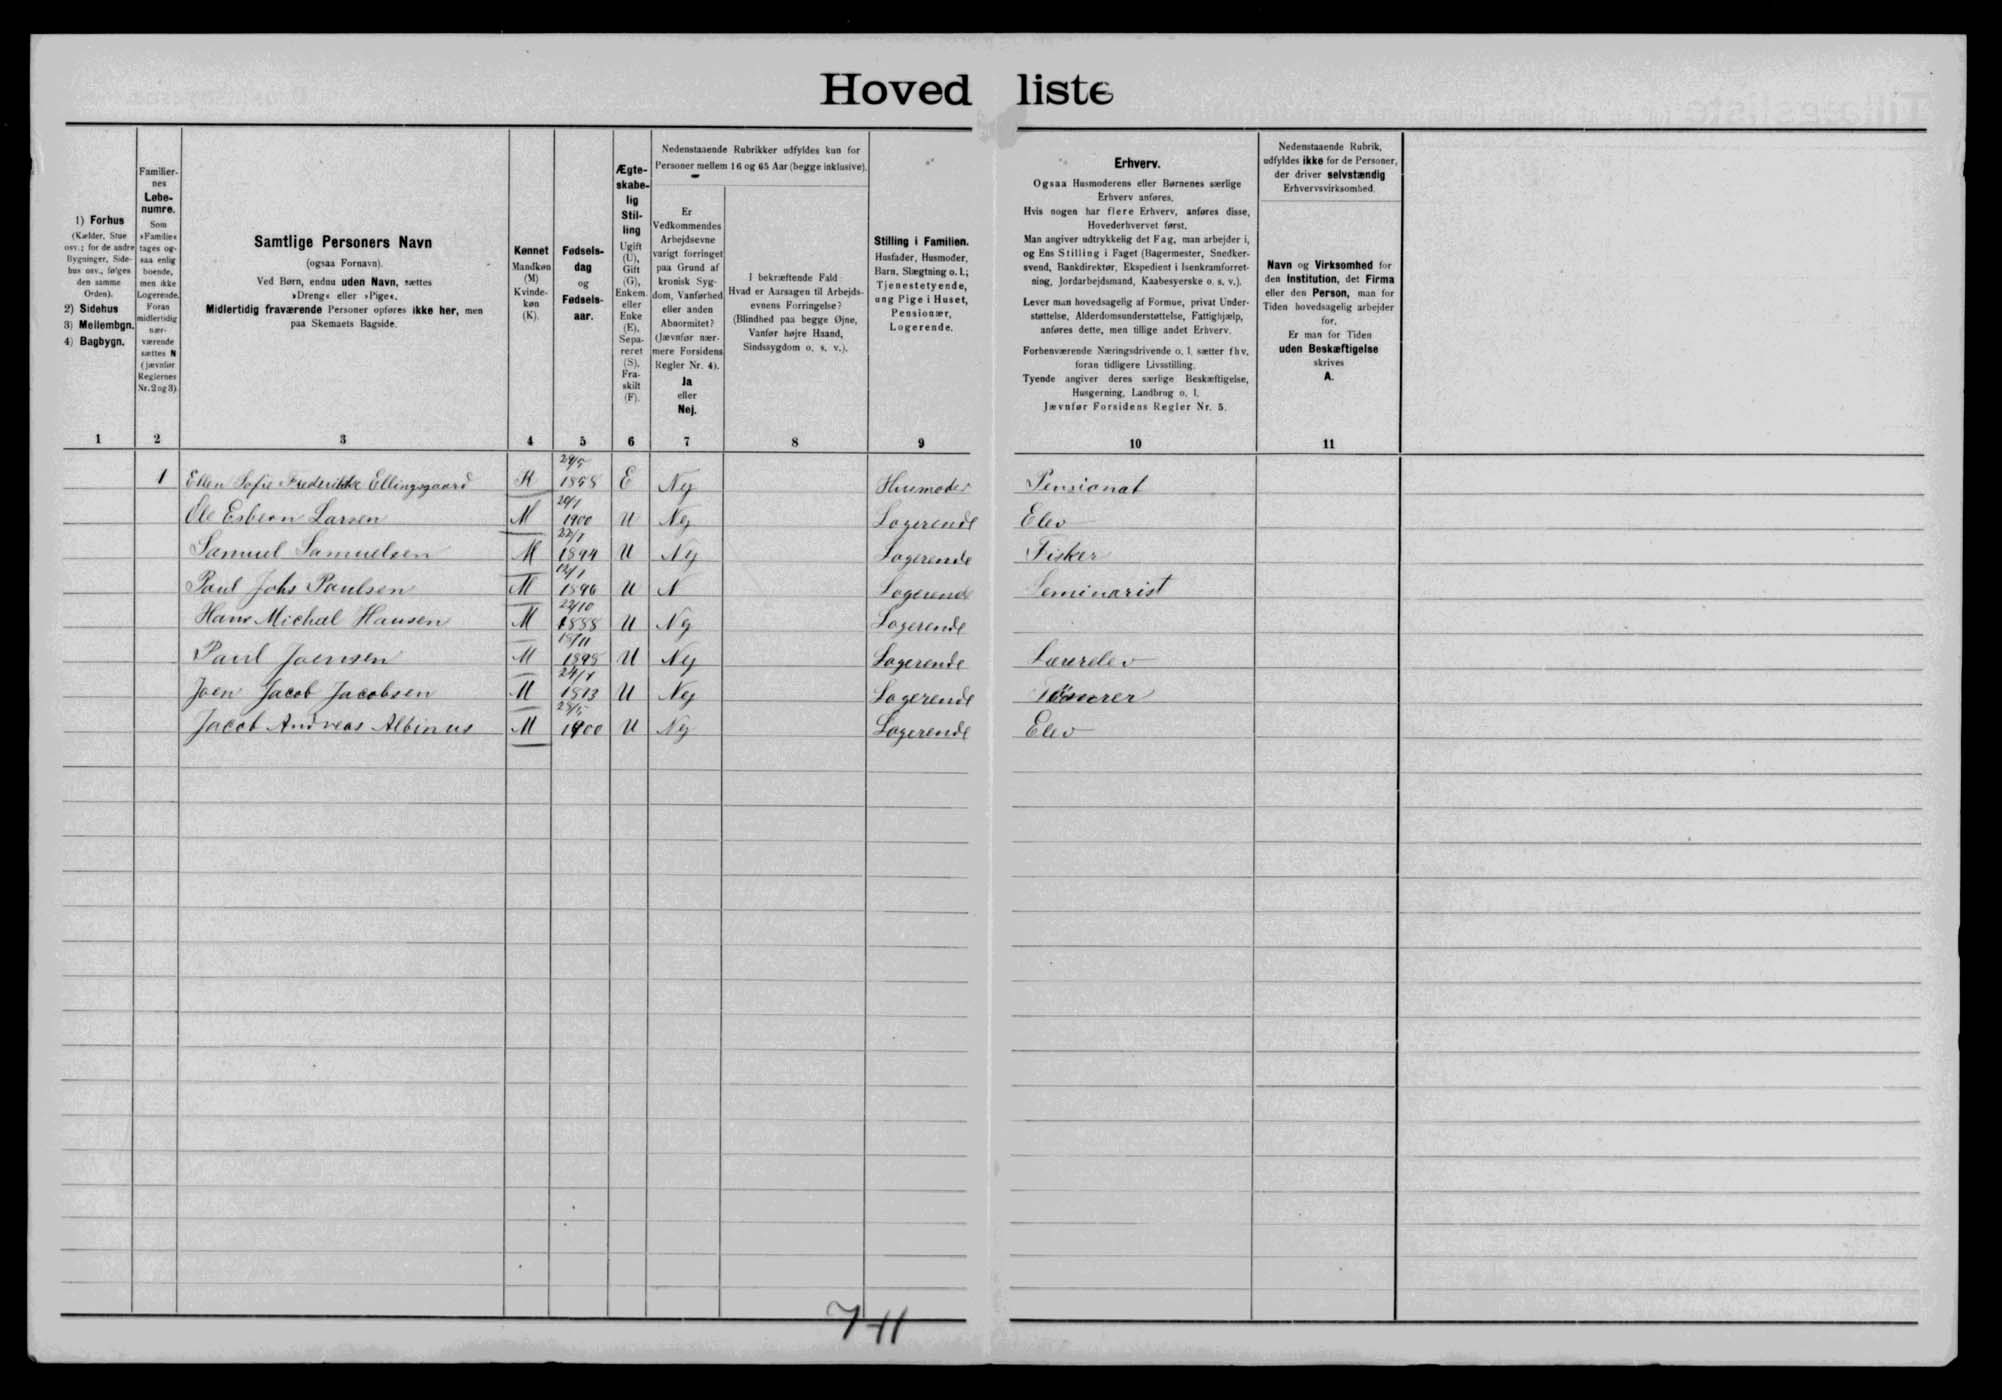 Hovedliste
1) Forhus
(Kælder, Stue
osv.; for de andre
Bygninger, Side-
hus osv., følges
den samme
Orden).
2) Sidehus
3) Mellembgn.
4) Bagbygn.
1
Familier-
nes
Løbe-
numre.
Som
»Familie«
tages og-
saa enlig
boende,
men ikke
Logerende.
Foran
midlertidig
nær-
værende
sættes N
(jævnfør
Reglernes
Nr. 2 og 3).
2
Samtlige Personers Navn
(ogsaa Fornavn).
Ved Børn, endnu uden Navn, sættes
»Dreng« eller »Pige«.
Midlertidig fraværende Personer opføres ikke her, men
paa Skemaets Bagside.
3
Kønnet
Mandkøn
(M)
Kvinde-
køn
(K).
4
Fødsels-
dag
og
Fødsels-
aar.
5
Ægte-
skabe-
lig
Stil-
ling
Ugift
(U),
Gift
(G),
Enkem.
eller
Enke
(E),
Sepa-
reret
(S),
Fra-
skilt
(F).
6
Nedenstaaende Rubrikker udfyldes kun for
Personer mellem 16 og 65 Aar (begge inklusive).
Er
Vedkommendes
Arbejdsevne
varigt forringet
paa Grund af
kronisk Syg-
dom, Vanførhed
eller anden
Abnormitet?
(Jævnfør nær-
mere Forsidens
Regler Nr. 4).
Ja
eller
Nej.
7
I bekræftende Fald:
Hvad er Aarsagen til Arbejds-
evnens Forringelse?
(Blindhed paa begge Øjne,
Vanfør højre Haand,
Sindssygdom o. s. v.).
8
Stilling i Familien.
Husfader, Husmoder,
Barn, Slægtning o. l.;
Tjenestetyende,
ung Pige i Huset,
Pensionær,
Logerende.
9
Erhverv.
Ogsaa Husmoderens eller Børnenes særlige
Erhverv anføres.
Hvis nogen har flere Erhverv, anføres disse,
Hovederhvervet først.
Man angiver udtrykkelig det Fag, man arbejder i,
og Ens Stilling i Faget (Bagermester, Snedker-
svend, Bankdirektør, Ekspedient i Isenkramforret-
ning, Jordarbejdsmand, Kaabesyerske o. s. v.).
Lever man hovedsagelig af Formue, privat Under-
støttelse, Alderdomsunderstøttelse, Fattighjælp,
anføres dette, men tillige andet Erhverv.
Forhenværende Næringsdrivende o. l. sætter fhv.
foran tidligere Livsstilling.
Tyende angiver deres særlige Beskæftigelse,
Husgerning, Landbrug o. l.
Jævnfør Forsidens Regler Nr. 5.
10
Nedenstaaende Rubrik,
udfyldes ikke for de Personer,
der driver selvstændig
Erhvervsvirksomhed.
Navn og Virksomhed for
den Institution, det Firma
eller den Person, man for
Tiden hovedsagelig arbejder
for.
Er man for Tiden
uden Beskæftigelse
skrives
A.
11
1 Ellen Sofie Frederikke Ellingsgaard K E Nej Husmoder Pensionat
Ole Esbern Larsen M 20/1 1900 U Nej Logerende Elev
Samuel Samuelsen M 22/1 1894 U Nej Logerende Fisker
Paul Johs Paulsen M 12/1 1896 U N Logerende Seminarist
Hans Michal Hansen M 22/10 1888 U Nej Logerende
Paul Joensen M U Nej Logerende Lærerelev
Joen Jacob Jacobsen M 24/1 U Nej Logerende
Jacob Andreas Albinus M 28/5 1900 U Nej Logerende Elev